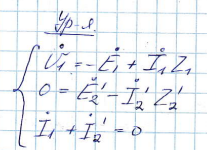 Ур-я.
U̇₁ = -Ė₁ + İ₁Z₁
0 = Ė₂' - İ₂'Z₂'
İ₁ + İ₂' = 0